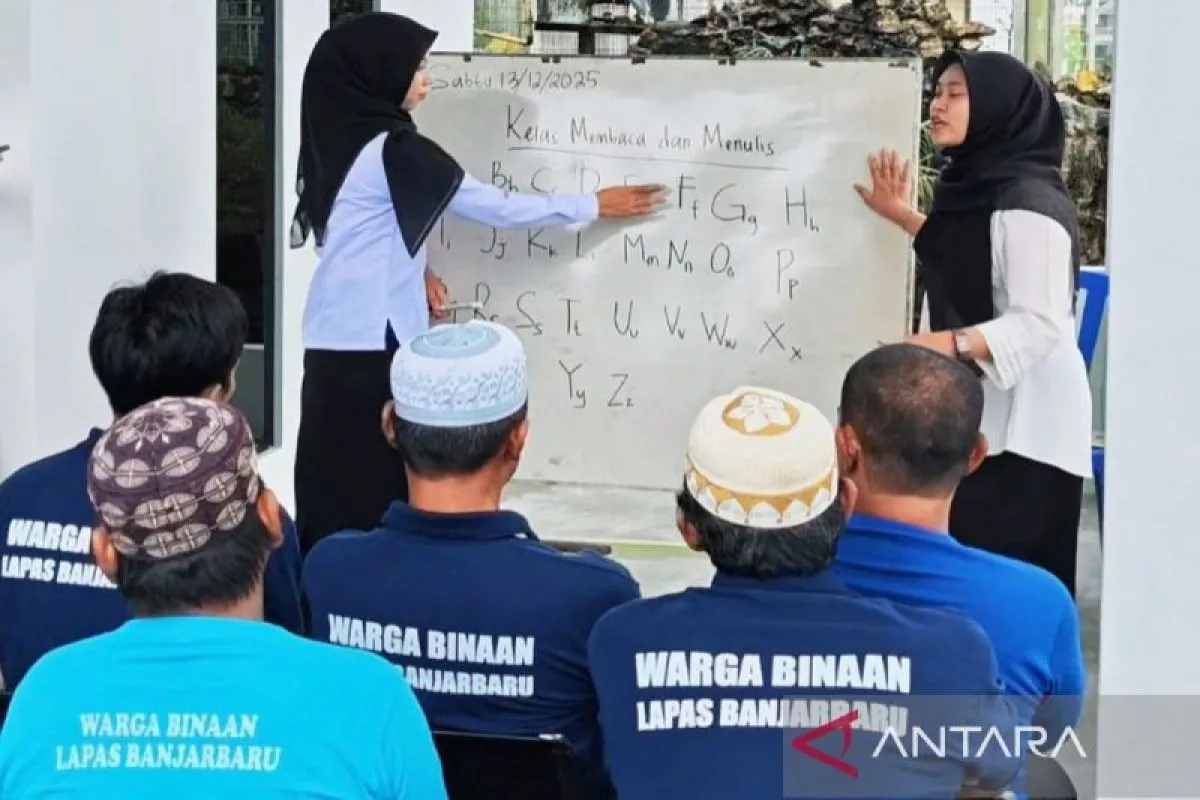 Sabtu 13/12/2025
Kelas Membaca dan Menulis
Bb Ff Gg Hh
Jj Kk Mm Nn Oo Pp
Ss Tt Uu Vv Ww Xx
Yy Zz
WARGA
LAPAS BANJA
WARGA BINAAN
BANJARBARU
WARGA BINAAN
LAPAS BANJARBARU
WARGA BINAAN
LAPAS BANJARBARU
ANTARA